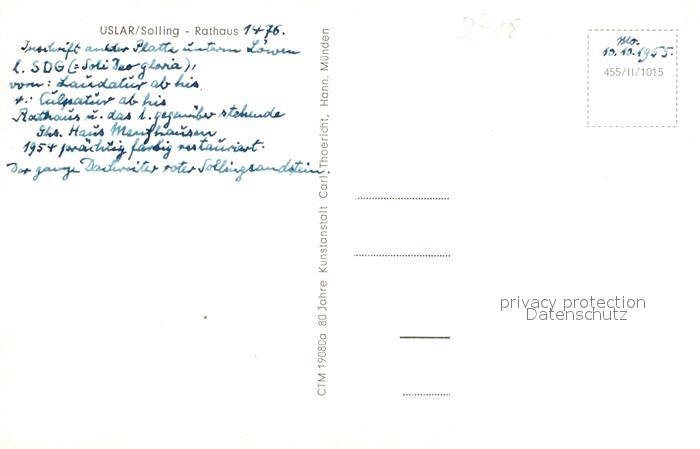 USLAR/Solling - Rathaus 1476.
Inschrift an der Platte unterm Löwen
l. SDG (= Soli Deo gloria),
vorn: Laudatur ab his,
r.: Culpatur ab his
Rathaus u. das l. gegenüber stehende
Ghs. Haus Menzhausen
1954 prächtig farbig restauriert.
Der ganze roter Sollingsandstein.
10.10.1955.
455/II/1015
CTM 19080a 80 Jahre Kunstanstalt Carl Thoericht, Hann. Münden
privacy protection
Datenschutz